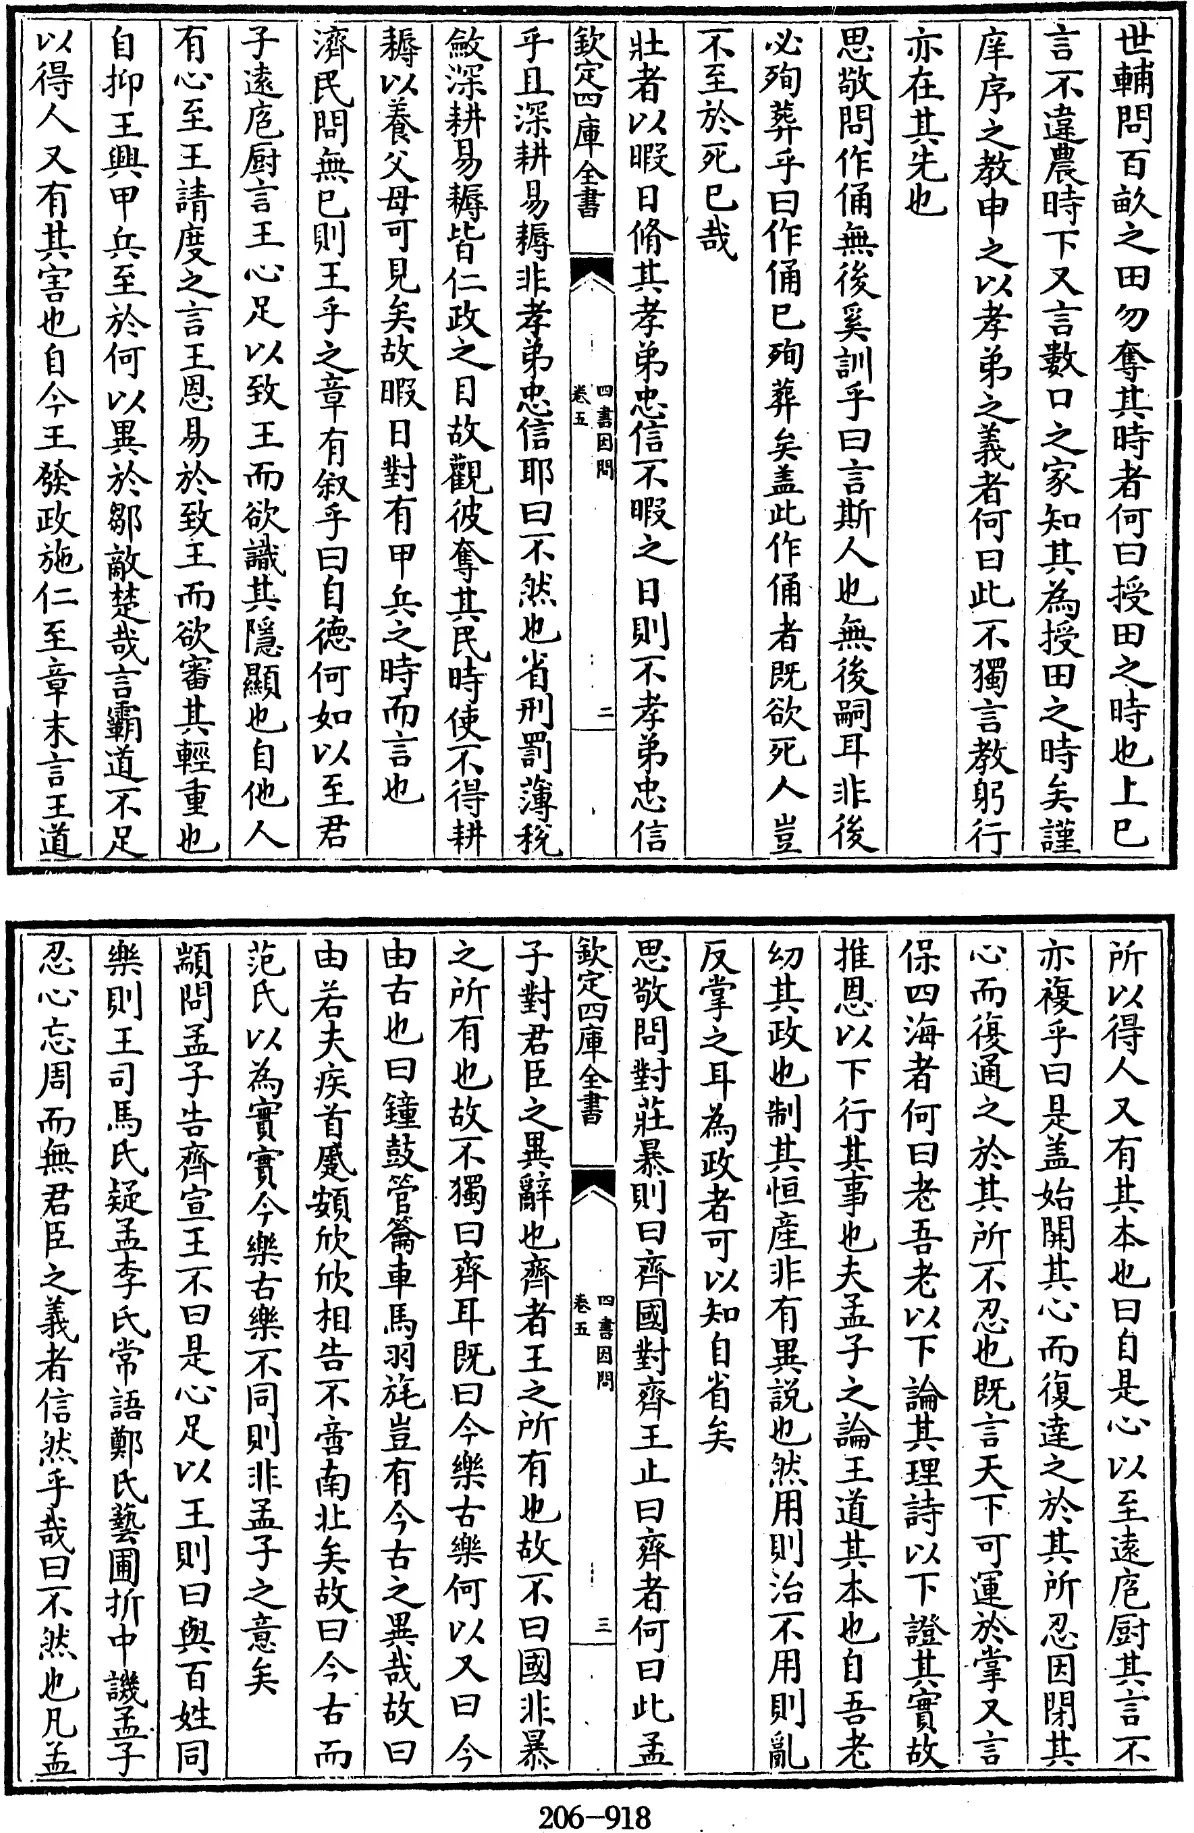 世輔問百畝之田勿奪其時者何曰授田之時也上已
言不違農時下又言數口之家知其為授田之時矣謹
庠序之教申之以孝弟之義者何曰此不獨言教躬行
亦在其先也
思敬問作俑無後奚訓乎曰言斯人也無後嗣耳非後
必殉葬乎曰作俑已殉葬矣盖此作俑者既欲死人豈
不至於死已哉
壯者以暇日脩其孝弟忠信不暇之日則不孝弟忠信
欽定四庫全書
四書因問
卷五
二
乎且深耕易耨非孝弟忠信耶曰不然也省刑罰薄稅
斂深耕易耨皆仁政之目故觀彼奪其民時使不得耕
耨以養父母可見矣故暇日對有甲兵之時而言也
濟民問無已則王乎之章有叙乎曰自德何如以至君
子遠庖厨言王心足以致王而欲識其隱顯也自他人
有心至王請度之言王恩易於致王而欲審其輕重也
自抑王興甲兵至於何以異於鄒敵楚哉言霸道不足
以得人又有其害也自今王發政施仁至章末言王道
所以得人又有其本也曰自是心以至遠庖厨其言不
亦複乎曰是盖始開其心而復達之於其所忍因閉其
心而復通之於其所不忍也既言天下可運於掌又言
保四海者何曰老吾老以下論其理詩以下證其實故
推恩以下行其事也夫孟子之論王道其本也自吾老
幼其政也制其恒産非有異説也然用則治不用則亂
反掌之耳為政者可以知自省矣
思敬問對莊暴則曰齊國對齊王止曰齊者何曰此孟
欽定四庫全書
四書因問
卷五
三
子對君臣之異辭也齊者王之所有也故不曰國非暴
之所有也故不獨曰齊耳既曰今樂古樂何以又曰今
由古也曰鐘鼓管籥車馬羽旄豈有今古之異哉故曰
由若夫疾首蹙頞欣欣相告不啻南北矣故曰今古而
范氏以為實實今樂古樂不同則非孟子之意矣
顓問孟子告齊宣王不曰是心足以王則曰與百姓同
樂則王司馬氏疑孟李氏常語鄭氏藝圃折中譏孟子
忍心忘周而無君臣之義者信然乎哉曰不然也凡孟
206-918